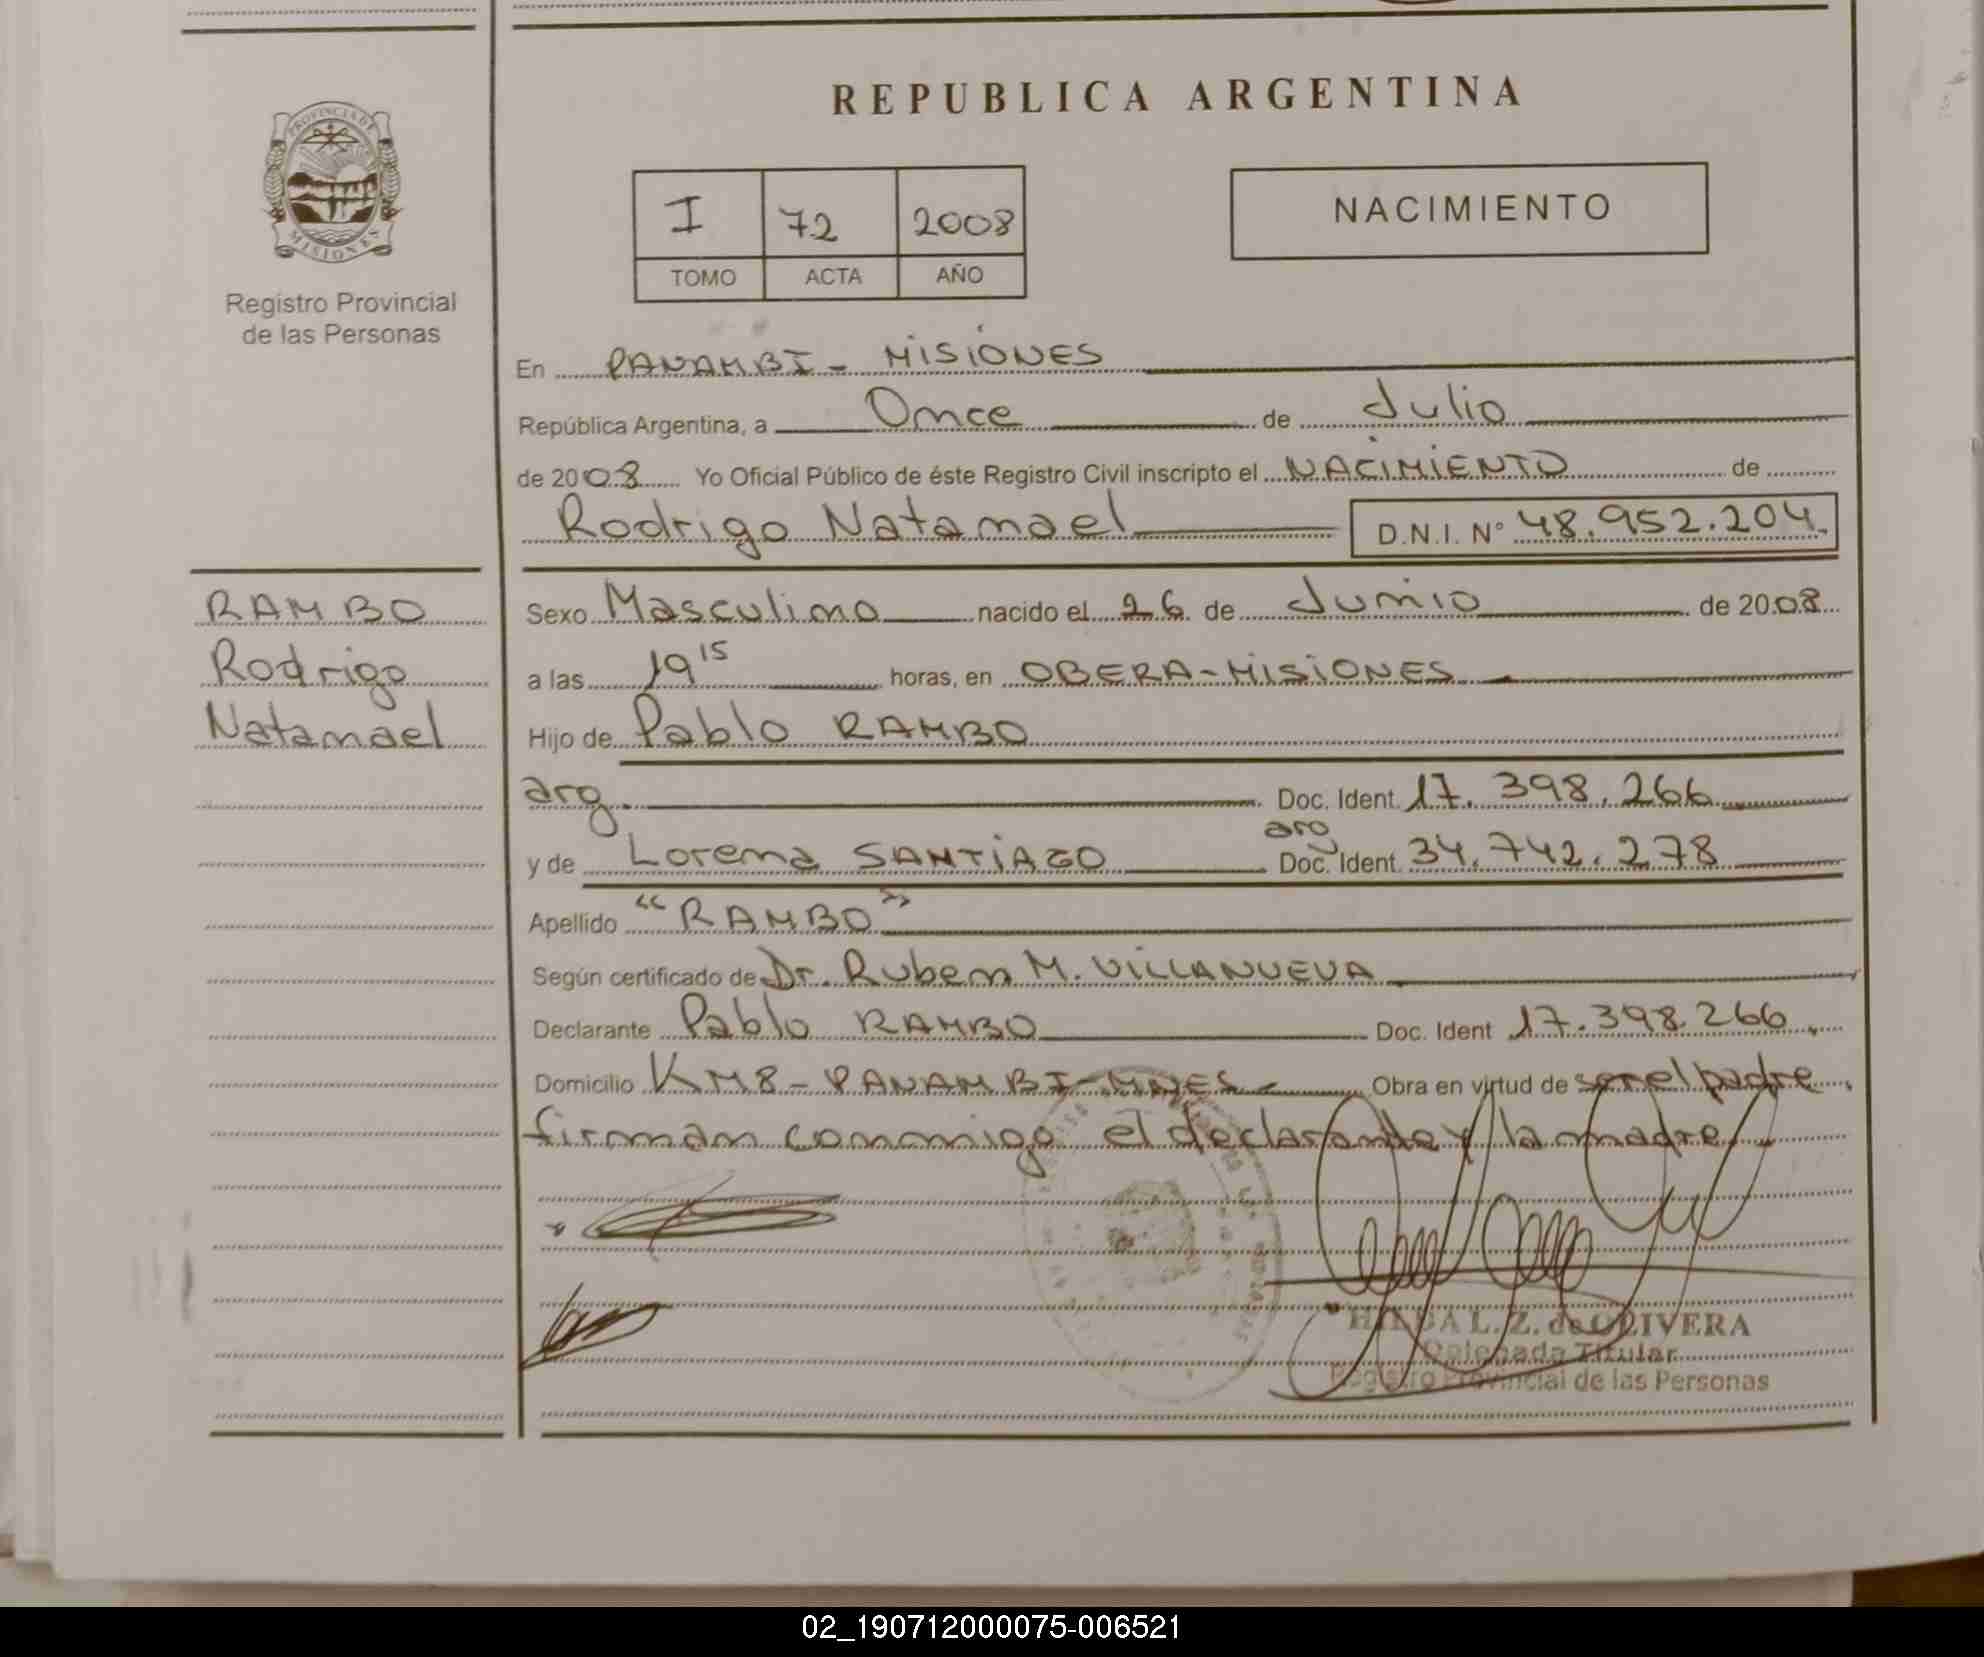 REPUBLICA ARGENTINA
PROVINCIA DE
MISIONES
Registro Provincial
de las Personas
I 72 2008
TOMO ACTA AÑO
NACIMIENTO
En PANAMBI - MISIONES
República Argentina, a Once de Julio
de 2008 Yo Oficial Público de éste Registro Civil inscripto el NACIMIENTO de
Rodrigo Natanael D.N.I. N° 48.952.204
RAMBO
Rodrigo
Natanael
Sexo Masculino nacido el 26 de Junio de 2008
a las 19 15 horas, en OBERA - MISIONES
Hijo de Pablo RAMBO
arg. Doc. Ident. 17.398.266
arg
y de Lorena SANTIAGO Doc. Ident. 34.742.278
Apellido "RAMBO"
Según certificado de Dr. Ruben M. VILLANUEVA
Declarante Pablo RAMBO Doc. Ident 17.398.266
Domicilio KM8 - PANAMBI - MNES Obra en virtud de ser el padre
firman conmigo el declarante y la madre
HILDA L. Z. de OLIVERA
Delegada Titular
Registro Provincial de las Personas
02_190712000075-006521